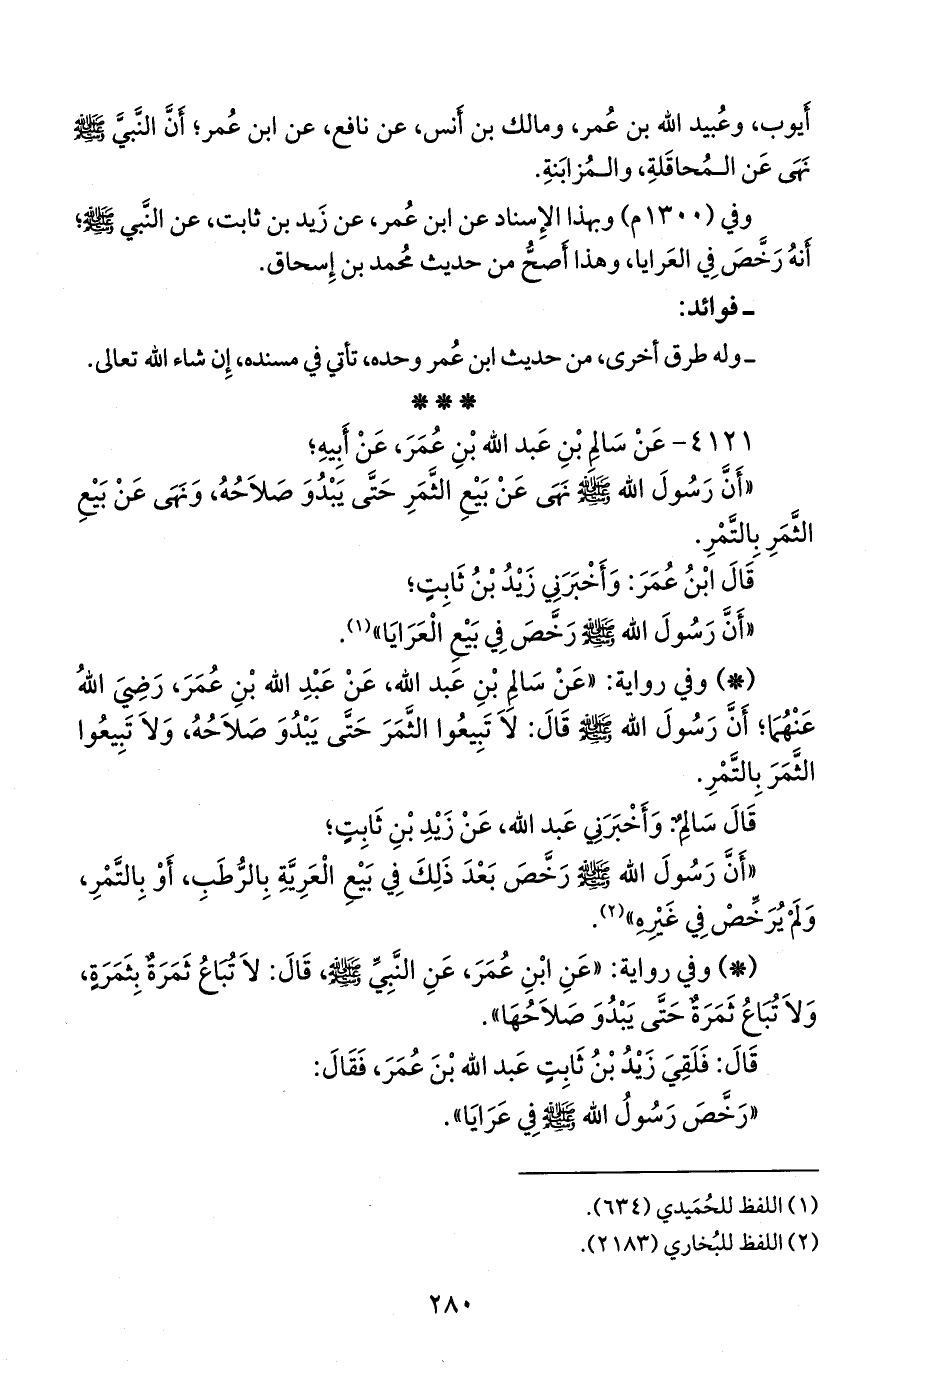 أَيوب، وعُبيد الله بن عُمر، ومالك بن أَنس، عن نافع، عن ابن عُمر؛ أَنَّ النَّبيَّ ﷺ
نَهَى عَن الـمُحاقَلةِ، والـمُزابَنةِ.
وفي (١٣٠٠م) وبهذا الإِسناد عن ابن عُمر، عن زَيد بن ثابت، عن النَّبي ﷺ؛
أَنهُ رَخَّصَ فِي العَرايا، وهذا أَصحُّ من حديث مُحمد بن إِسحاق.
ـ فوائد:
ـ وله طرق أخرى، من حديث ابن عُمر وحده، تأتي في مسنده، إِن شاء الله تعالى.
* * *
٤١٢١- عَنْ سَالِمِ بْنِ عَبد الله بْنِ عُمَرَ، عَنْ أَبِيهِ؛
«أَنَّ رَسُولَ الله ﷺ نَهَى عَنْ بَيْعِ الثَّمَرِ حَتَّى يَبْدُوَ صَلاَحُهُ، وَنَهَى عَنْ بَيْعِ
الثَّمَرِ بِالتَّمْرِ.
قَالَ ابْنُ عُمَرَ: وَأَخْبَرَنِي زَيْدُ بْنُ ثَابِتٍ؛
«أَنَّ رَسُولَ الله ﷺ رَخَّصَ فِي بَيْعِ الْعَرَايَا»(١).
(*) وفي رواية: «عَنْ سَالِمِ بْنِ عَبد الله، عَنْ عَبْدِ الله بْنِ عُمَرَ، رَضِيَ اللهُ
عَنْهُمَا؛ أَنَّ رَسُولَ الله ﷺ قَالَ: لاَ تَبِيعُوا الثَّمَرَ حَتَّى يَبْدُوَ صَلاَحُهُ، وَلاَ تَبِيعُوا
الثَّمَرَ بِالتَّمْرِ.
قَالَ سَالِمٌ: وَأَخْبَرَنِي عَبد الله، عَنْ زَيْدِ بْنِ ثَابِتٍ؛
«أَنَّ رَسُولَ الله ﷺ رَخَّصَ بَعْدَ ذَلِكَ فِي بَيْعِ الْعَرِيَّةِ بِالرُّطَبِ، أَوْ بِالتَّمْرِ،
وَلَمْ يُرَخِّصْ فِي غَيْرِهِ»(٢).
(*) وفي رواية: «عَنِ ابْنِ عُمَرَ، عَنِ النَّبِيِّ ﷺ، قَالَ: لاَ تُبَاعُ ثَمَرَةٌ بِثَمَرَةٍ،
وَلاَ تُبَاعُ ثَمَرَةٌ حَتَّى يَبْدُوَ صَلاَحُهَا».
قَالَ: فَلَقِيَ زَيْدُ بْنُ ثَابِتٍ عَبد الله بْنَ عُمَرَ، فَقَالَ:
«رَخَّصَ رَسُولُ الله ﷺ فِي عَرَايَا».
(١) اللفظ للحُمَيدي (٦٣٤).
(٢) اللفظ للبُخاري (٢١٨٣).
٢٨٠